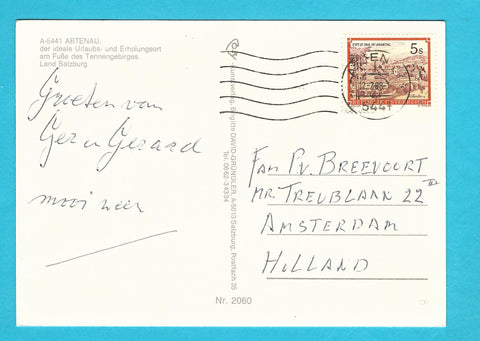 A-5441 ABTENAU,
der ideale Urlaubs- und Erholungsort
am Fuße des Tennengebirges.
Land Salzburg
Groeten van
Ger en Gerard
mooi weer
Kunstverlag, Brigitte DAVID-GRÜNDLER, A-5013 Salzburg, Postfach 35
Tel. 0662-34334
Nr. 2060
5s
5441
FAM P.V. BREEVOORT
MR. TREUBLAAN 22 III
AMSTERDAM
HOLLAND